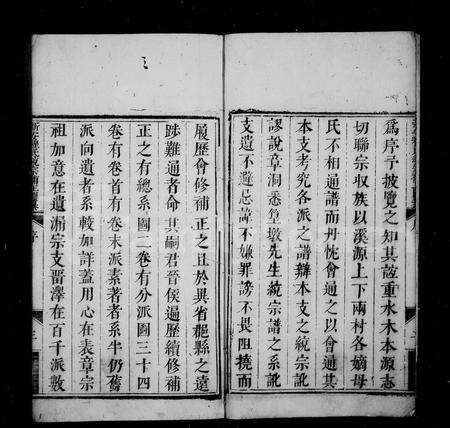 爲序予披覽之知其設重水木本源志
切聯宗収族以溪源上下兩村各嫡母
氏不相通譜而丹忱會通之以會通其
本支考究各派之譜辯本支之統宗訛
謬說章洞悉篁墩先生統宗譜之系訛
支遺不避忌諱不嫌罪謗不畏阻撓而
履歷會修補正之且於異省窎縣之遠
跡難通者命其嗣君晉侯遍歷續修補
正之有總系圖二卷有分派圖三十四
卷有卷首有卷末派素著者系半仍舊
派向遺者系較加詳蓋用心在表章宗
祖加意在遺漏宗支晋澤在百千派數